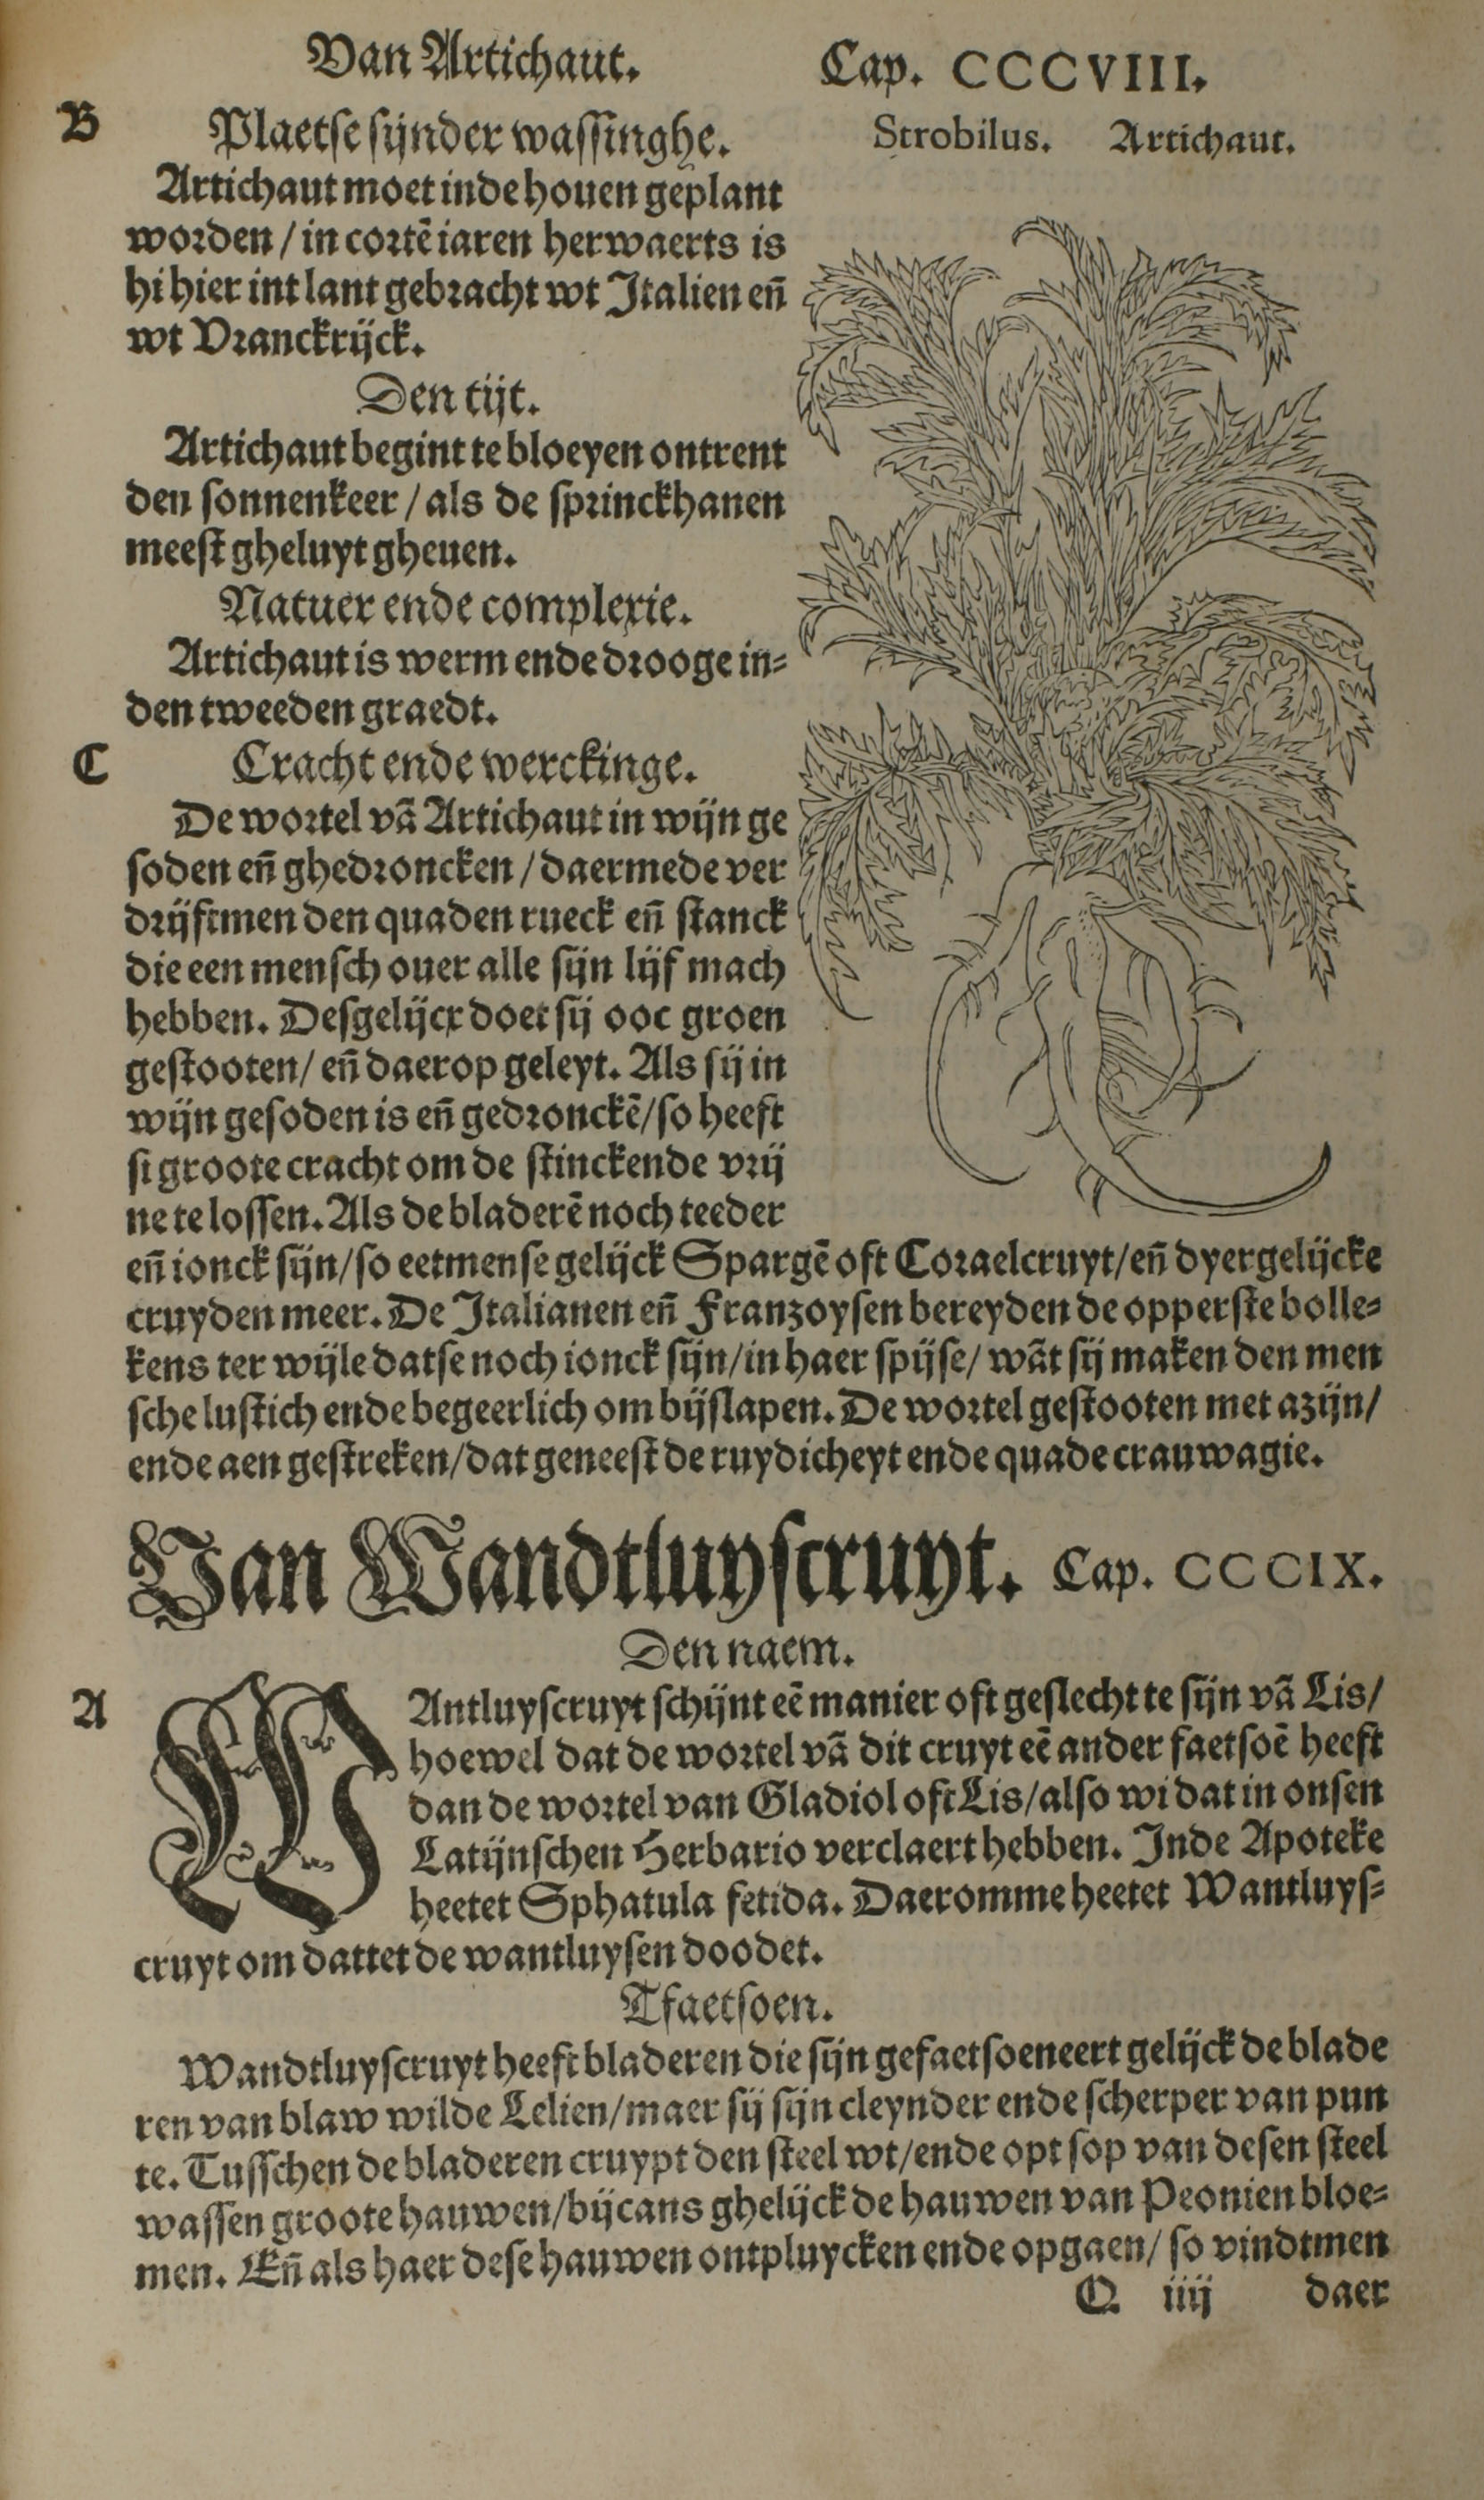 Van Artichaut. Cap. CCCVIII.
B Plaetse sijnder wassinghe.
Strobilus. Artichaut.
Artichaut moet inde houen geplant
worden / in cortē iaren herwaerts is
hi hier int lant gebracht wt Italien eñ
wt Vranckrijck.
Den tijt.
Artichaut begint te bloeyen ontrent
den sonnenkeer / als de sprinckhanen
meest gheluyt gheuen.
Natuer ende complexie.
Artichaut is werm ende drooge in⸗
den tweeden graedt.
C Cracht ende werckinge.
De wortel vā Artichaut in wijn ge
soden eñ ghedroncken / daermede ver
drijftmen den quaden rueck eñ stanck
die een mensch ouer alle sijn lijf mach
hebben. Desgelijcx doet sij ooc groen
gestooten / eñ daerop geleyt. Als sij in
wijn gesoden is eñ gedronckē / so heeft
si groote cracht om de stinckende vrij
ne te lossen. Als de bladerē noch teeder
eñ ionck sijn / so eetmense gelijck Spargē oft Coraelcruyt / eñ dyergelijcke
cruyden meer. De Italianen eñ Franzoysen bereyden de opperste bolle⸗
kens ter wijle datse noch ionck sijn / in haer spijse / wāt sij maken den men
sche lustich ende begeerlich om bijslapen. De wortel gestooten met azijn /
ende aen gestreken / dat geneest de ruydicheyt ende quade crauwagie.
Van Wandtluyscruyt. Cap. CCCIX.
Den naem.
A WAntluyscruyt schijnt eē manier oft geslecht te sijn vā Lis /
hoewel dat de wortel vā dit cruyt eē ander faetsoē heeft
dan de wortel van Gladiol oft Lis / also wi dat in onsen
Latijnschen Herbario verclaert hebben. Inde Apoteke
heetet Sphatula fetida. Daeromme heetet Wantluys⸗
cruyt om dattet de wantluysen doodet.
Tfaetsoen.
Wandtluyscruyt heeft bladeren die sijn gefaetsoeneert gelijck de blade
ren van blaw wilde Lelien / maer sij sijn cleynder ende scherper van pun
te. Tusschen de bladeren cruypt den steel wt / ende opt sop van desen steel
wassen groote hauwen / bijcans ghelijck de hauwen van Peonien bloe⸗
men. Eñ als haer dese hauwen ontpluycken ende opgaen / so vindtmen
Q iiij daer